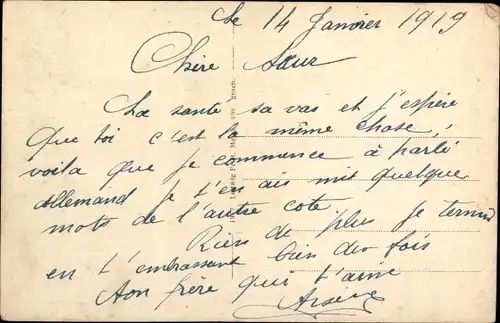 Le 14 Janvier 1919
Chère Sœur
La santé sa vas et j'espère
que toi c'est la même chose,
voila que je commence à parlé
allemand je t'en ais mit quelque
mots de l'autre coté.
Riens de plus je termine
en t'embrassant bien des fois
Ton frère qui t'aime
Arsène